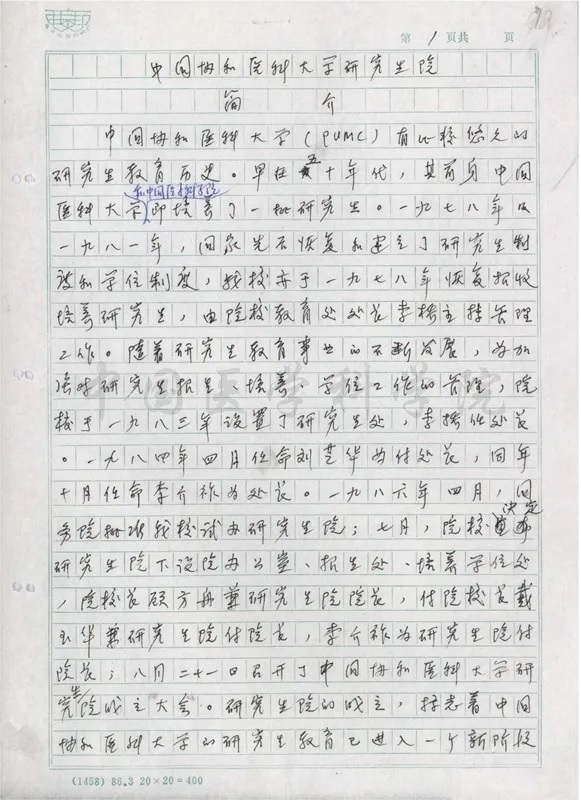 第 1 页共 页
中国协和医科大学研究生院
简 介
中国协和医科大学（PUMC）有比较悠久的
研究生教育历史。早在五十年代，其前身中国
和中国医学科学院
医科大学即培养了一批研究生。一九七八年及
一九八一年，国家先后恢复和建立了研究生制
度和学位制度，我校亦于一九七八年恢复招收
培养研究生，由院校教育处处长李扬主持管理
工作。随着研究生教育事业的不断发展，为加
强对研究生招生、培养、学位工作的管理，院
校于一九八三年设置了研究生处，李扬任处长
。一九八四年四月任命刘芝华为付处长，同年
十月任命李介祚为处长。一九八六年四月，国
务院批准我校试办研究生院；七月，院校决定
研究生院下设院办公室、招生处、培养学位处
，院校长顾方舟兼研究生院院长，付院校长戴
玉华兼研究生院付院长，李介祚为研究生院付
院长；八月二十一日召开了中国协和医科大学研
究生院成立大会。研究生院的成立，标志着中国
协和医科大学的研究生教育已进入一个新阶段
中国医学科学院
(1458) 86.3 20×20=400